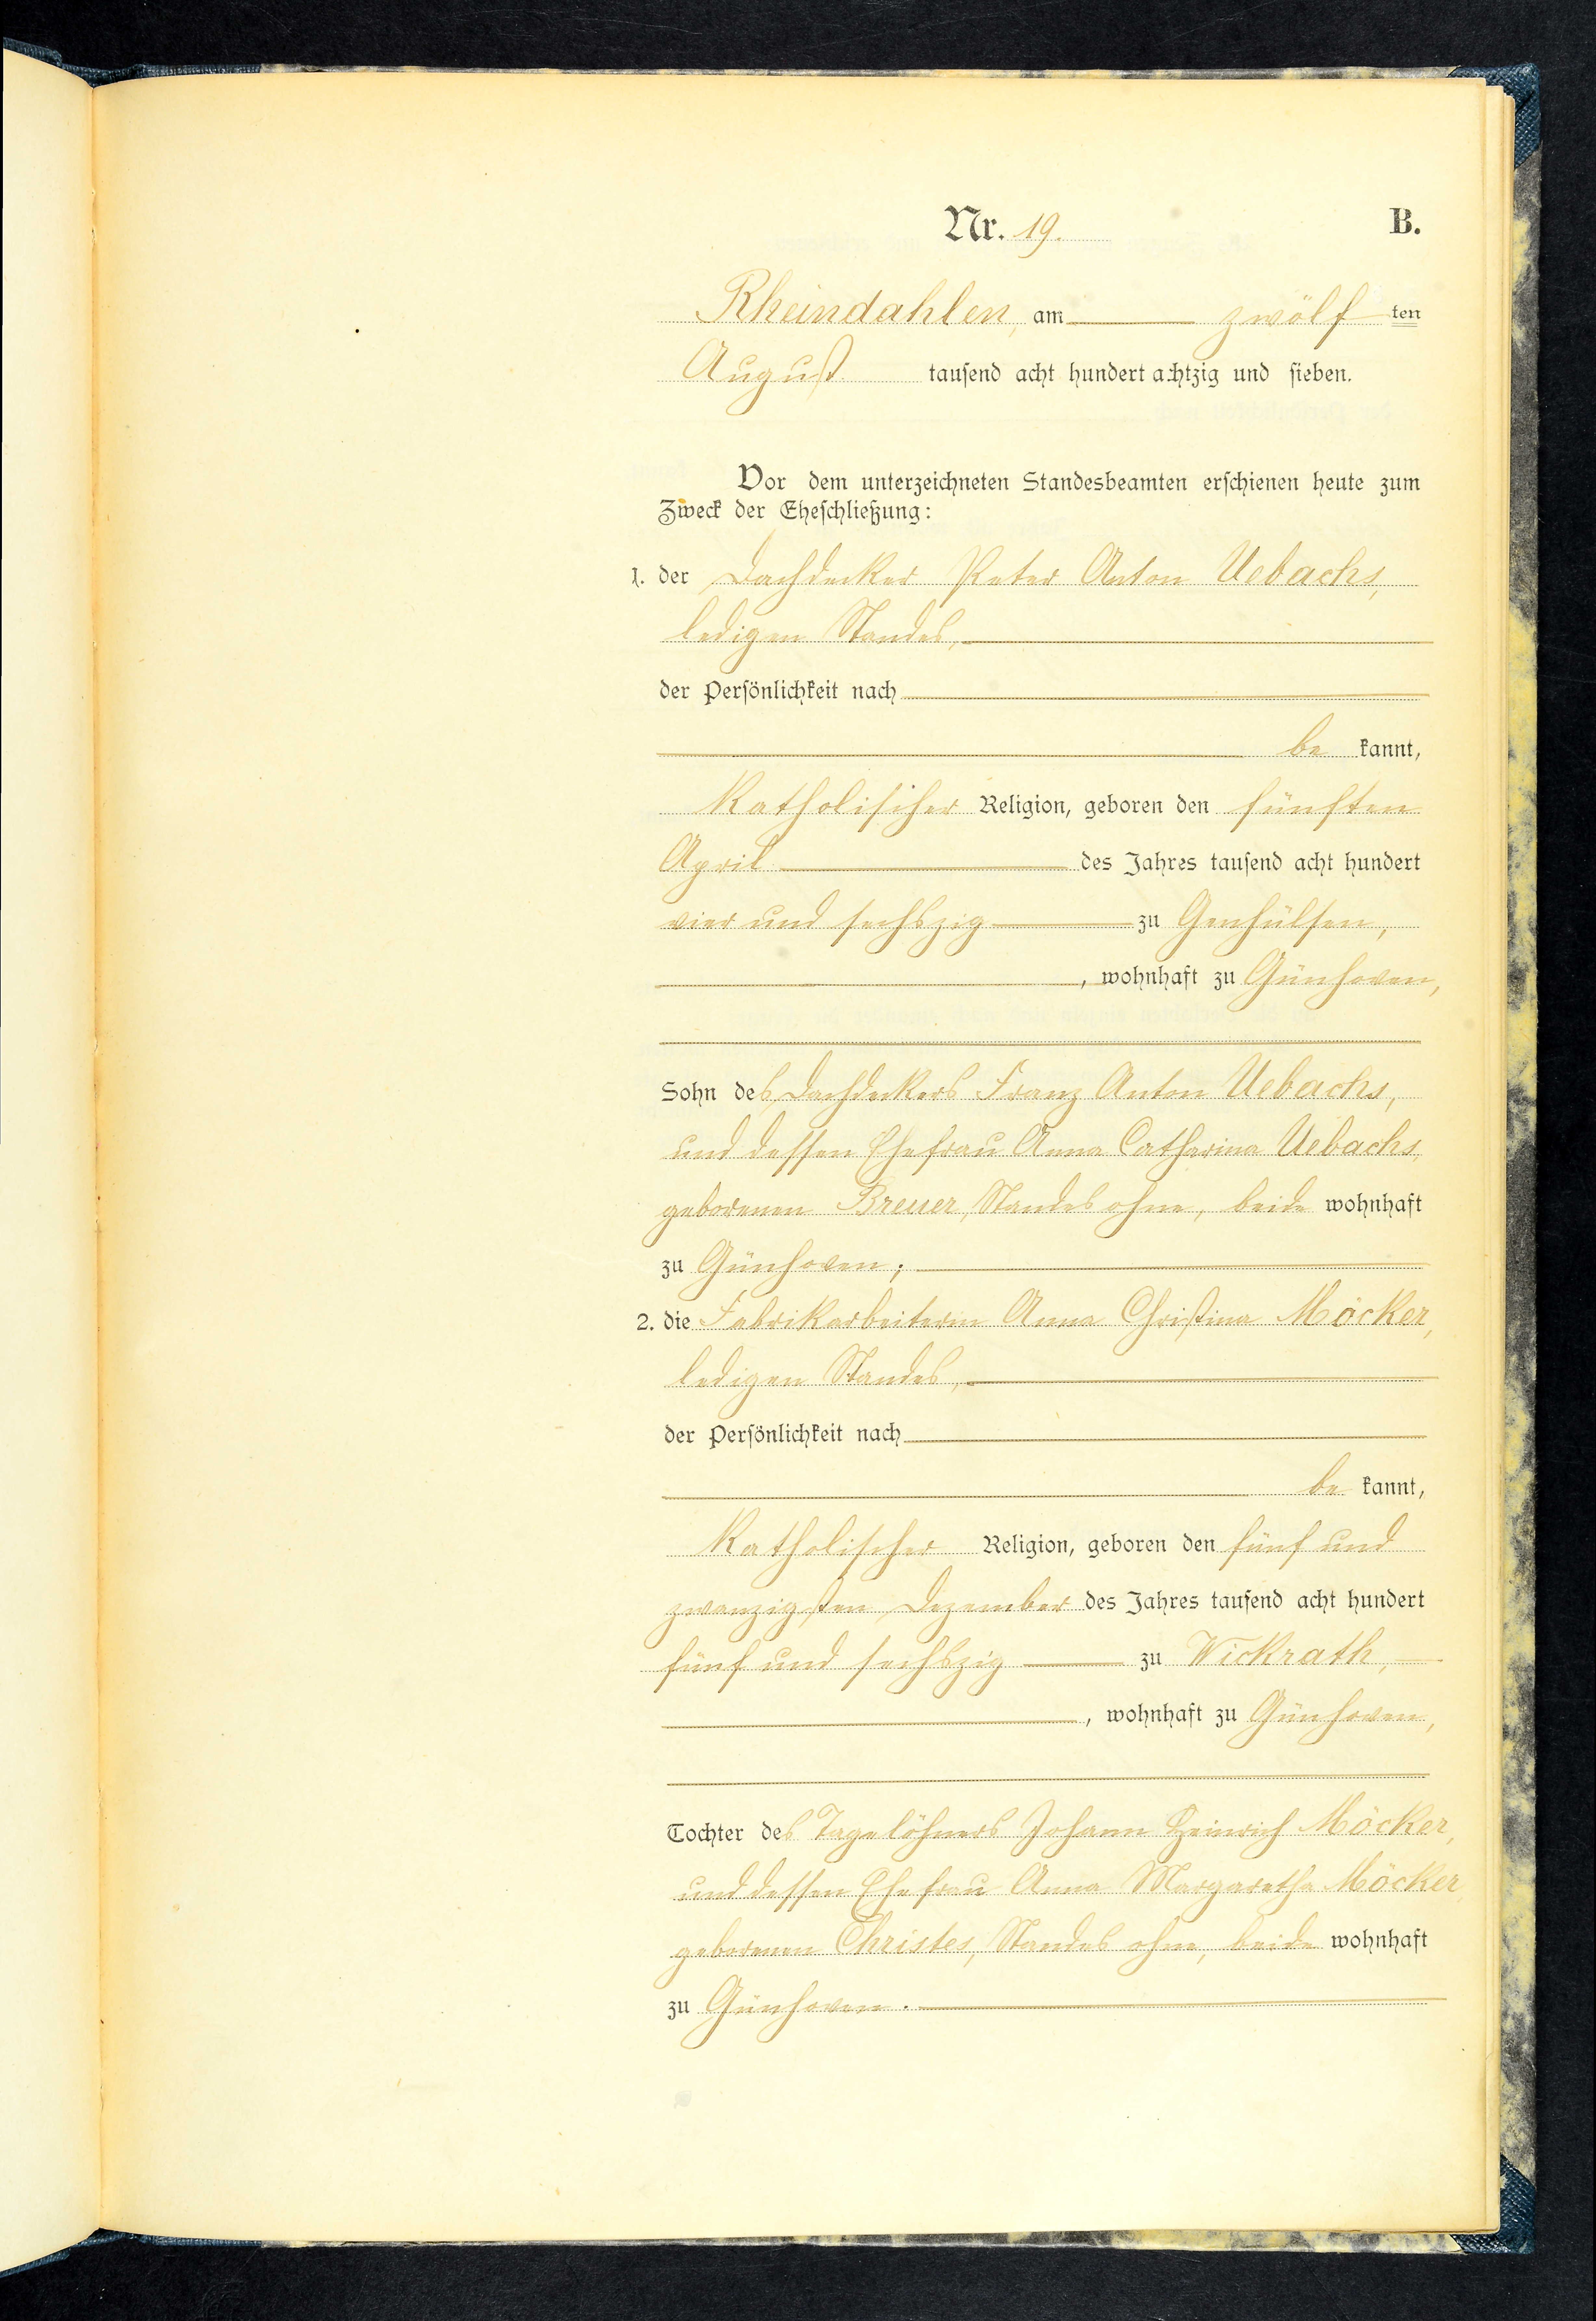 Nr. 19. B.
Rheindahlen, am zwölf ten
August tausend acht hundert achtzig und sieben.
Vor dem unterzeichneten Standesbeamten erschienen heute zum
Zweck der Eheschließung:
1. der Dachdecker Peter Anton Uebachs,
ledigen Standes,
der Persönlichkeit nach
be kannt,
katholischer Religion, geboren den fünften
April des Jahres tausend acht hundert
vier und sechszig zu Genhülsen,
, wohnhaft zu Günhoven,
Sohn des Dachdeckers Franz Anton Uebachs,
und dessen Ehefrau Anna Catharina Uebachs,
geborenen Breuer, Standes ohne, beide wohnhaft
zu Günhoven;
2. die Fabrikarbeiterin Anna Christina Möcker,
ledigen Standes,
der Persönlichkeit nach
be kannt,
katholischer Religion, geboren den fünf und
zwanzigsten Dezember des Jahres tausend acht hundert
fünf und sechszig zu Wickrath,
, wohnhaft zu Günhoven,
Tochter des Tagelöhners Johann Heinrich Möcker,
und dessen Ehefrau Anna Margaretha Möcker,
geborenen Christes, Standes ohne, beide wohnhaft
zu Günhoven.